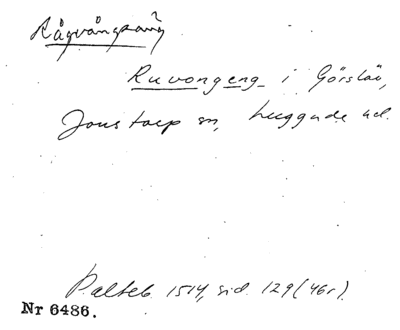 Rågvångsäng
Ruvongeng i Görslöv,
Jonstorp sn, Luggude hd.
Palteb. 1514, sid. 129 (46r).
Nr 6486.